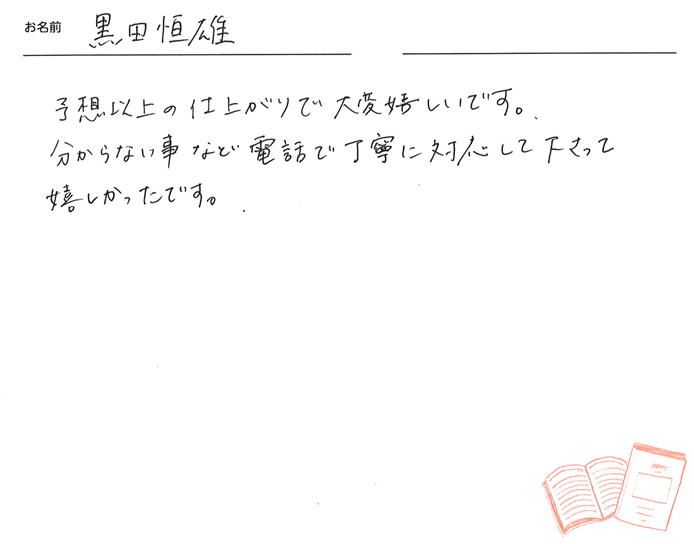 お名前 黒田恒雄
予想以上の仕上がりで大変嬉しいです。
分からない事など電話で丁寧に対応して下さって
嬉しかったです。